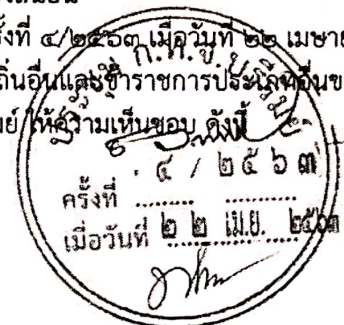 ครั้งที่ ๔/๒๕๖๓ เมื่อวันที่ ๒๒ เมษาย
ถิ่นอื่นและข้าราชการประเภทอื่นข
ให้ความเห็นชอบ ดังนี้
ก.ท.จ.
ครั้งที่ ๔ / ๒๕๖๓
เมื่อวันที่ ๒ ๒ เม.ย. ๒๕๖๓